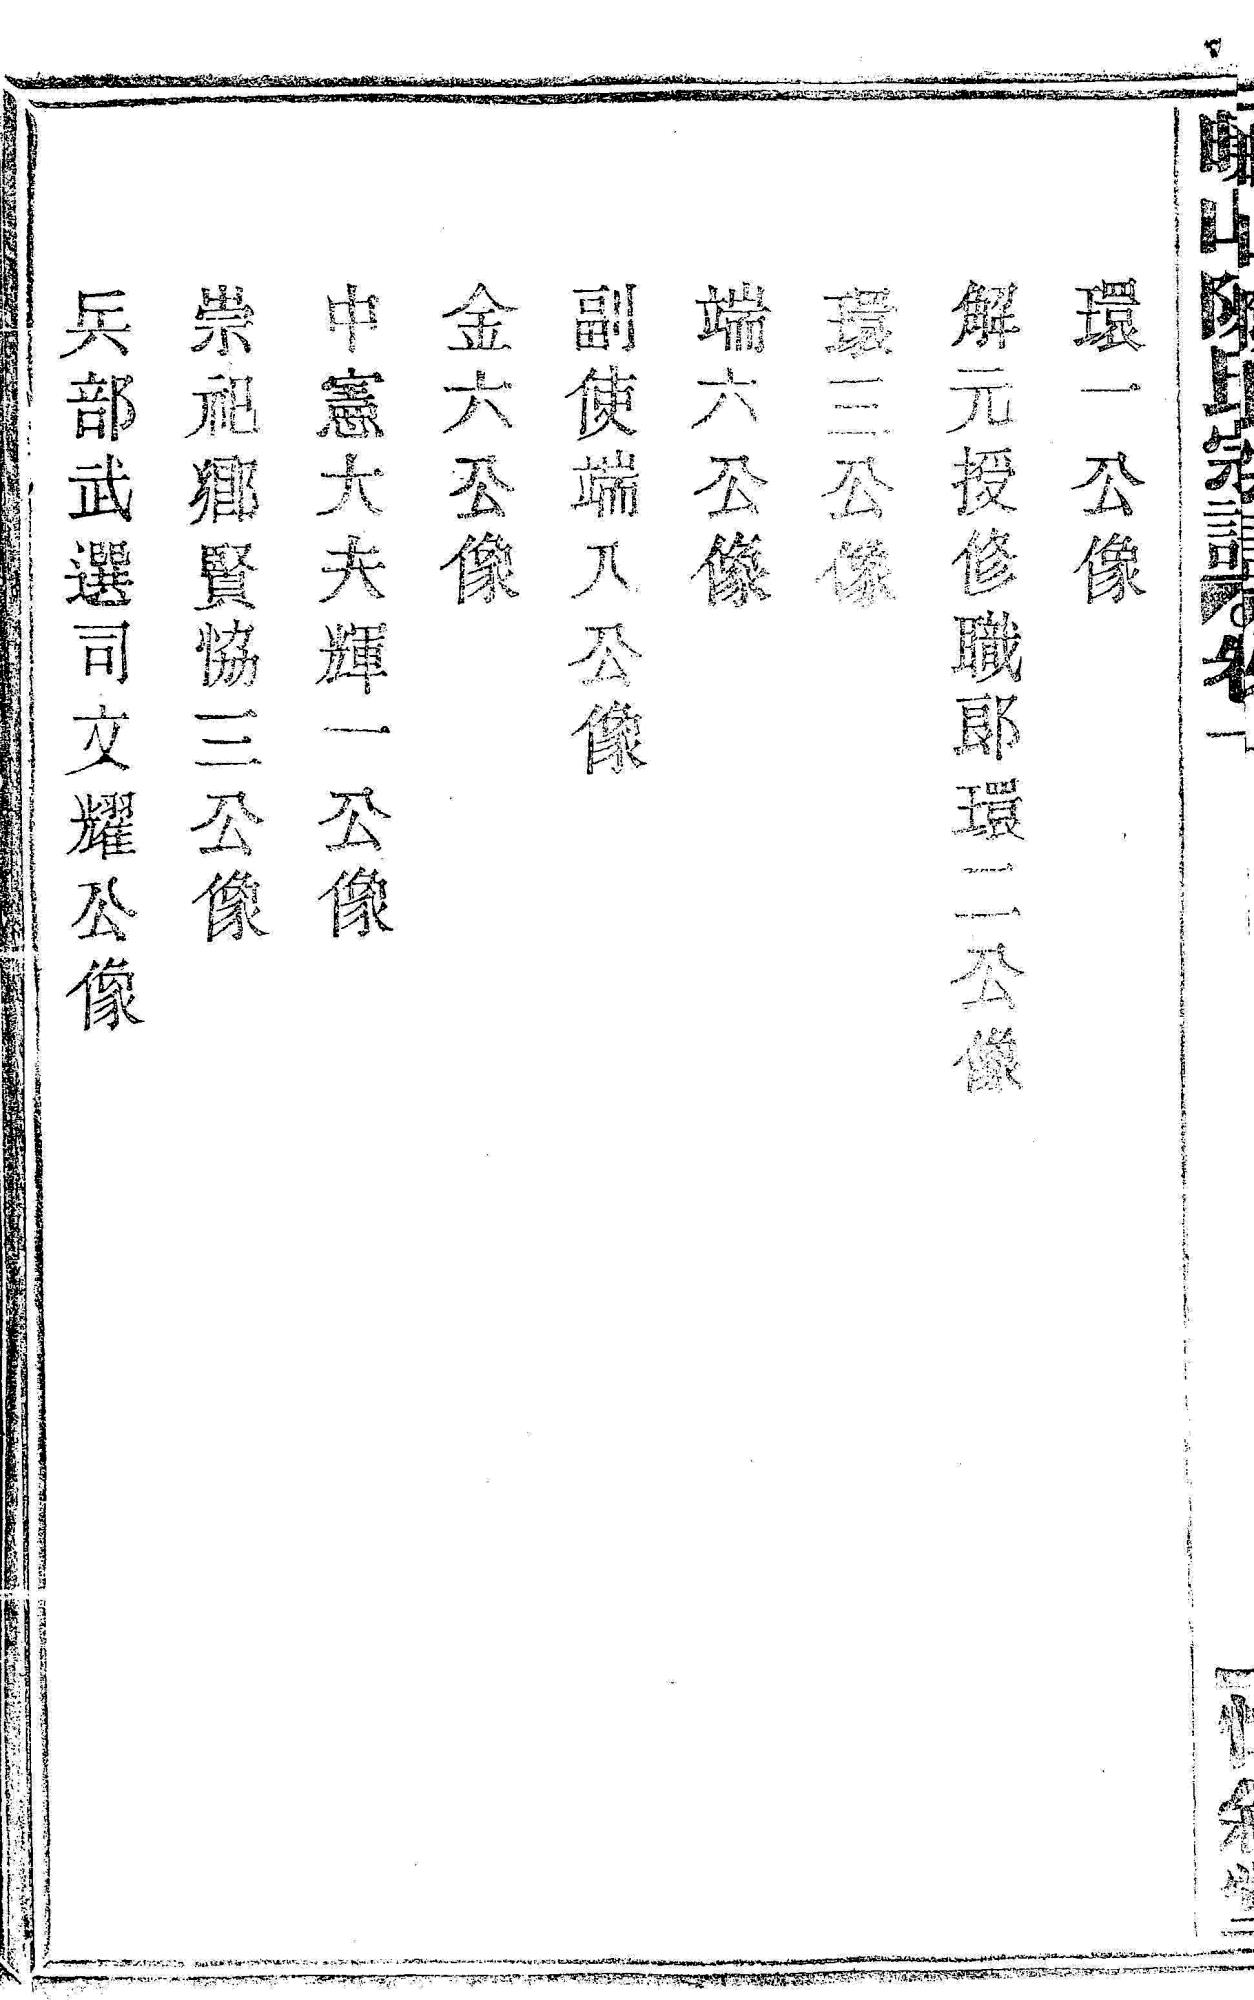 環一公像
解元授修職郞環二公像
環三公像
端六公像
副使端八公像
金六公像
中憲大夫輝一公像
崇祀鄕賢恊三公像
兵部武選司文耀公像
山陳氏宗譜 卷一